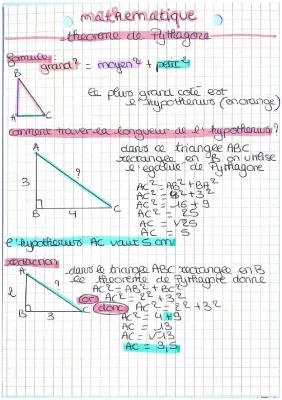 mathematique
theoreme de Pythagore
formule:
grand² = moyen² + petit²
B
A
C
le plus grand coté est
l'hypothenus (en orange)
comment trouver la longueur de l'hypothenus?
A
3
?
B
4
C
dans ce triangle ABC
rectangle en B on utilise
l'égalité de Pythagore
AC² = AB² + BA²
AC² = 4² + 3²
AC² = 16 + 9
AC² = 25
AC = √25
AC = 5
l'hypothenus AC vaut 5 cm
redaction
A
2
?
B
3
C
dans le triangle ABC rectangle en B
le theoreme de Pythagore donne
AC² = AB² + BC²
or AC² = 2² + 3²
donc AC² = 2² + 3²
AC² = 4 + 9
AC = 13
AC = √13
AC = 3,5